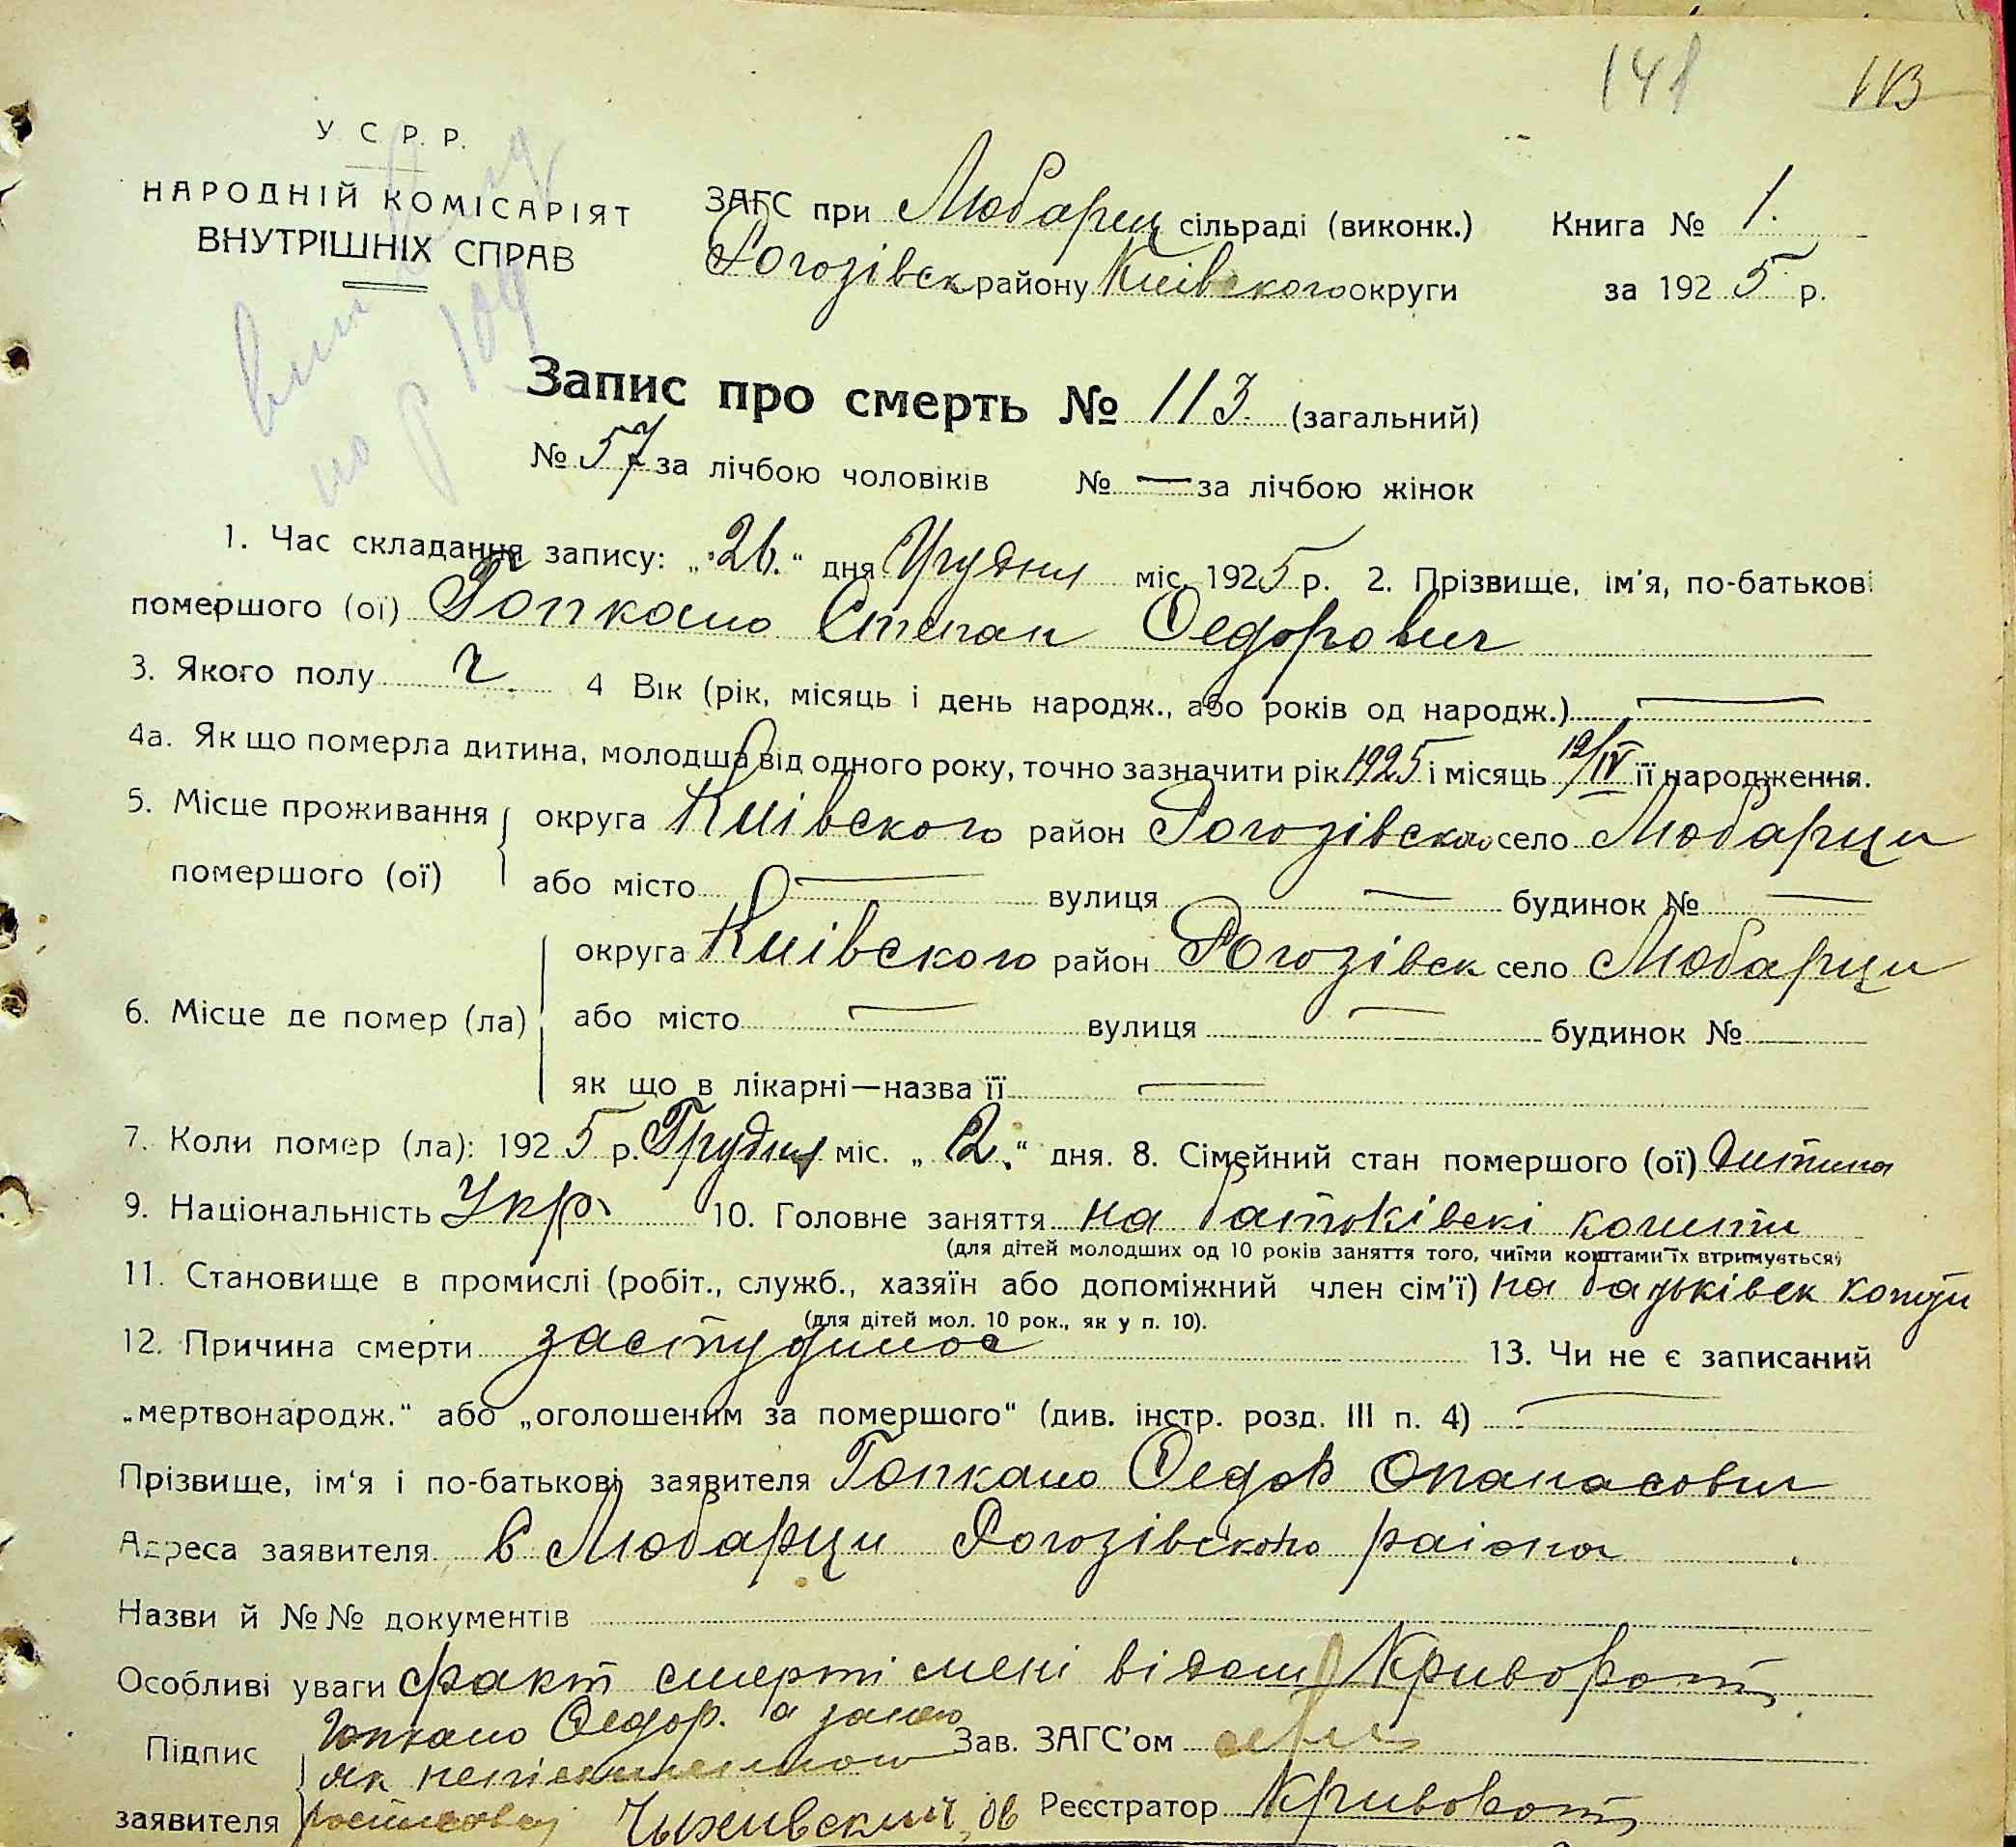 141 113
У С Р. Р.
НАРОДНІЙ КОМІСАРІЯТ
ВНУТРІШНІХ СПРАВ
ЗАГС при Любарец сільраді (виконк.) Книга № 1.
Рогозівск району Київского округи за 1925 р.
Запис про смерть № 113. (загальний)
№ 57 за лічбою чоловіків № — за лічбою жінок
1. Час складання запису: „26.“ дня Грудня міс. 1925 р. 2. Прізвище, ім'я, по-батькові
помершого (ої) Гопкало Степан Федорович
3. Якого полу ч. 4 Вік (рік, місяць і день народж., або років од народж.) —
4а. Як що померла дитина, молодша від одного року, точно зазначити рік 1925 і місяць 12/IV її народження.
5. Місце проживання округа Київского район Рогозівско село Любарци
помершого (ої) або місто — вулиця — будинок № —
округа Київского район Рогозівск село Любарци
6. Місце де помер (ла) або місто — вулиця — будинок №
як що в лікарні—назва її —
7. Коли помер (ла): 1925 р. Грудня міс. „2.“ дня. 8. Сімейний стан помершого (ої) дитина
9. Національність Укр. 10. Головне заняття на батьківскі кошти
(для дітей молодших од 10 років заняття того, чиїми коштами їх втримується)
11. Становище в промислі (робіт., служб., хазяїн або допоміжний член сім'ї) на батьківск кошти
(для дітей мол. 10 рок., як у п. 10).
12. Причина смерти застудилос 13. Чи не є записаний
„мертвонародж.“ або „оголошеним за помершого“ (див. інстр. розд. III п. 4) —
Прізвище, ім'я і по-батькові заявителя Гопкало Федор Опанасович
Адреса заявителя. в Любарци Рогозівского раіона
Назви й №№ документів
Особливі уваги факт смерті мені відом Криворот
Гопкало Федор. а за його
Підпис Зав. ЗАГС'ом
як неписьменного
заявителя росписовся Чыживский Реєстратор Криворот